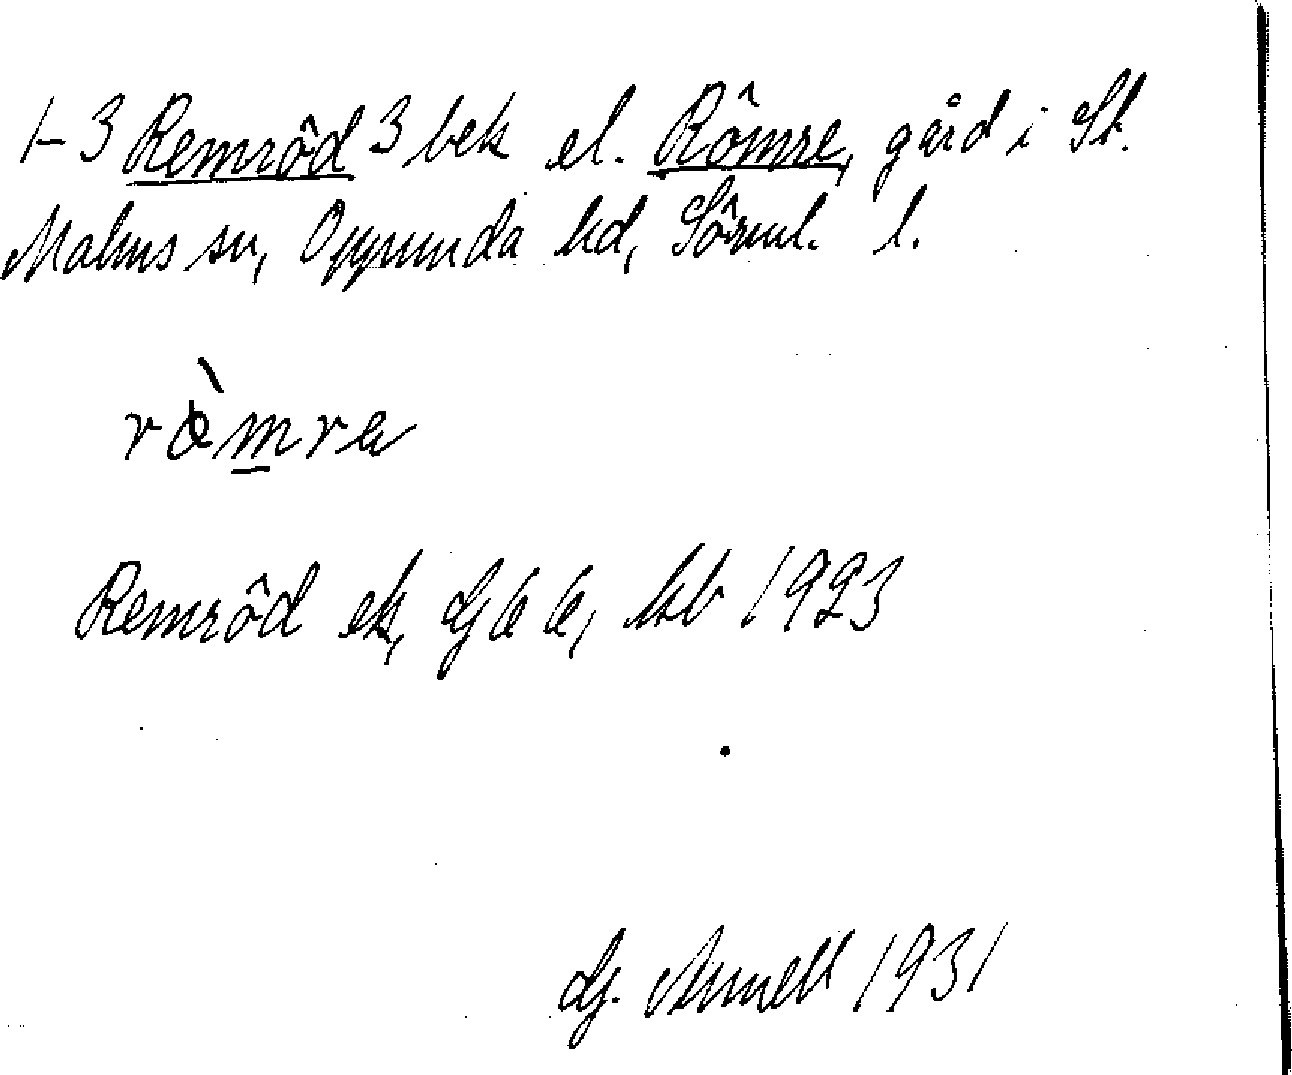 1-3 Remröd 3 bek el. Römre, gård i St.
Malms sn, Oppunda hd, Sörml. l.
ròmra
Remröd ek, GEK, kb 1923
G. Arnell 1931